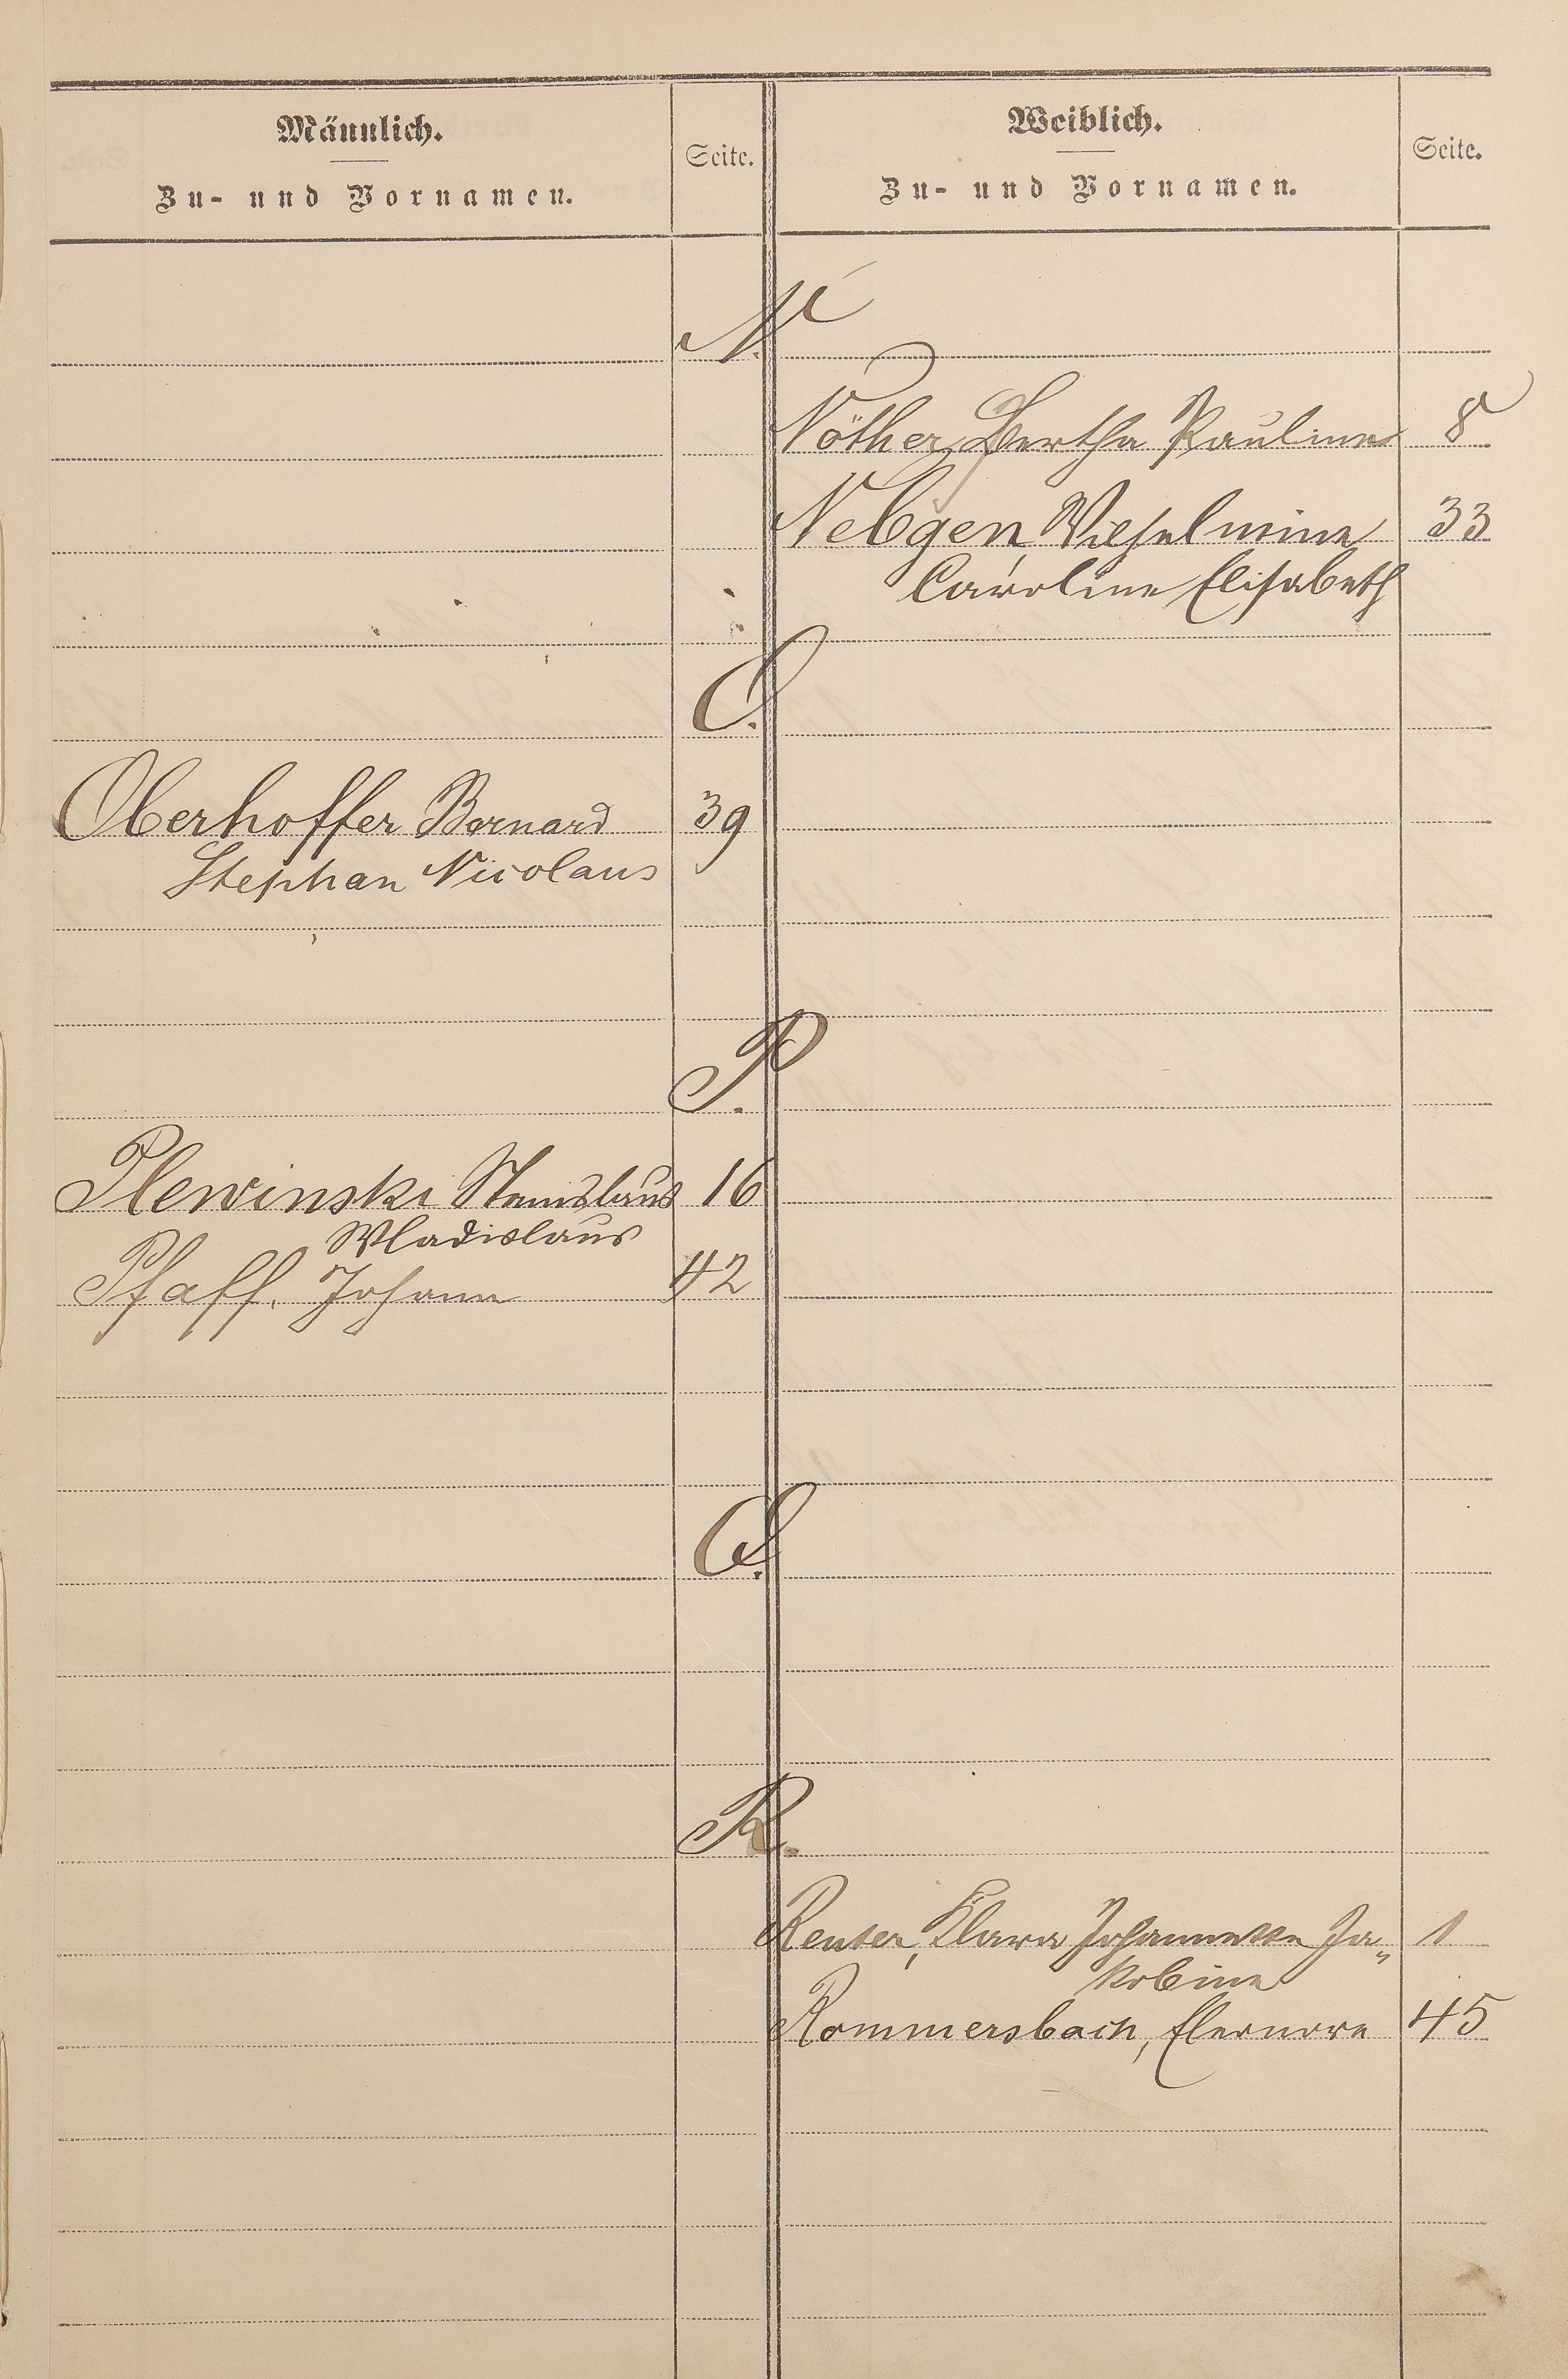 Männlich.
Zu- und Vornamen.
Seite.
Weiblich.
Zu- und Vornamen.
Seite.
N.
Nöther, Bertha Pauline 8
Nebgen, Wilhelmine 33
Caroline Elisabeth
O.
Oberhoffer Bernard 39
Stephan Nicolaus
P.
Plewinski Stanislaus 16
Wladislaus
Pfaff, Johann 42
Q.
R.
Reuter, Klara Johannette Ja„ 1
kobine
Rommersbach, Eleonore 45